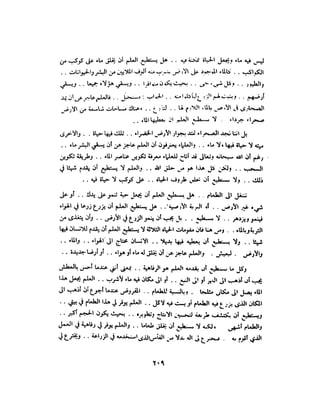 ليس فيه ماء ويجعل الحياة ممكنة فيه .. هل يستطيع العلم أن يخلق ماء على كوكب من
الكواكب .. فالماء الموجود على الأرض يشرب منه ألوف الملايين من البشر والحيوانات ..
والطيور .. وكل شيء حي .. بحيث يكون منه وافرا .. ويسقي هؤلاء جميعا .. ويسقي
أرضهم .. وينبت لهم الزرع ليأكلوا منه .. الجواب : مستحيل .. فالعلم عاجز عن أن يمد
الصحارى في الأرض بالماء اللازم لها .. لتزرع .. وهناك مساحات شاسعة من الأرض
صحراء جرداء . لا يستطيع العلم أن يعطيها الماء ..
بل اننا نجد الصحراء تمتد بجوار الأرض الخضراء .. تلك فيها حياة .. والأخرى
ميتة لا حياة فيها ولا ماء .. والعلماء يعترفون أن العلم عاجز عن أن يسقي البشر ماء ..
رغم أن الله سبحانه وتعالى قد أتاح للعلماء معرفة تكوين عناصر الماء .. وطريقة تكوين
السحب .. ولكن كل هذا هو من خلق الله .. والعلم لا يستطيع أن يقدم شيئا في
ذلك .. ولا يستطيع أن يخلق ظروف الحياة .. على كوكب لا حياة فيه ..
ننتقل الى الطعام .. هل يستطيع العلم أن يجعل حبة تنمو على يدك .. أو على
شيء غير الأرض .. أو التربة الأرضية .. هل يستطيع العلم أن يزرع زرعا في الهواء
فينمو ويزدهر .. لا يستطيع .. بل يجب أن ينمو الزرع في الأرض .. وأن يتغذى من
التربة وبالماء .. ومن هنا فان مقومات الحياة الثلاثة لا يستطيع العلم أن يقدم للانسان فيها
شيئا .. ولا يستطيع أن يعطيه فيها بديلا .. الانسان يحتاج الى الهواء .. والماء ..
والأرض . ليعيش . والعلم عاجز عن أن يخلق له ماء أو هواء .. أو أرضا جديدة ..
وكل ما يستطيع أن يقدمه العلم هو الرفاهية .. بمعنى أنني عندما أحس بالعطش
يجب أن أذهب الى البئر أو الى النبع .. أو الى مكان فيه ماء لأشرب .. العلم يجعل هذا
الماء يصل الى مكان مثلجا . وبالنسبة للطعام .. المفروض عندما أجوع أن أذهب الى
المكان الذي يزرع فيه الطعام أو ينبت فيه لآكل .. العلم يوفر لي هذا الطعام في بيتي ..
ويستطيع أن يكتشف طريقة لتحسين الانتاج وتطويره .. بحيث يكون الحجم أكبر ..
والطعام أشهى .. ولكنه لا يستطيع أن يخلق طعاما .. والعلم يوفر لي رفاهية في العمل
الذي أقوم به . فيخترع لي آلة بدلا من الفأس الذي استخدمه في الزراعة .. ويخترع لي
٢٠٩